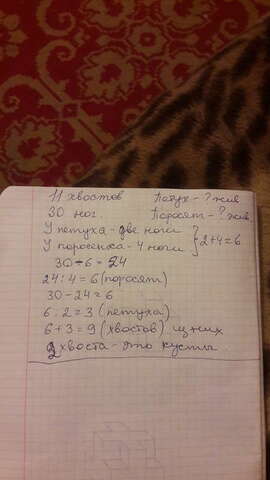 11 хвостов Петух - ? жив
30 ног. Поросят - ? жив
У петуха - две ноги
У поросенка - 4 ноги } 2+4=6
30-6=24
24:4=6 (поросят)
30-24=6
6:2=3 (петуха)
6+3=9 (хвостов) из них
2 хвоста - это кусты